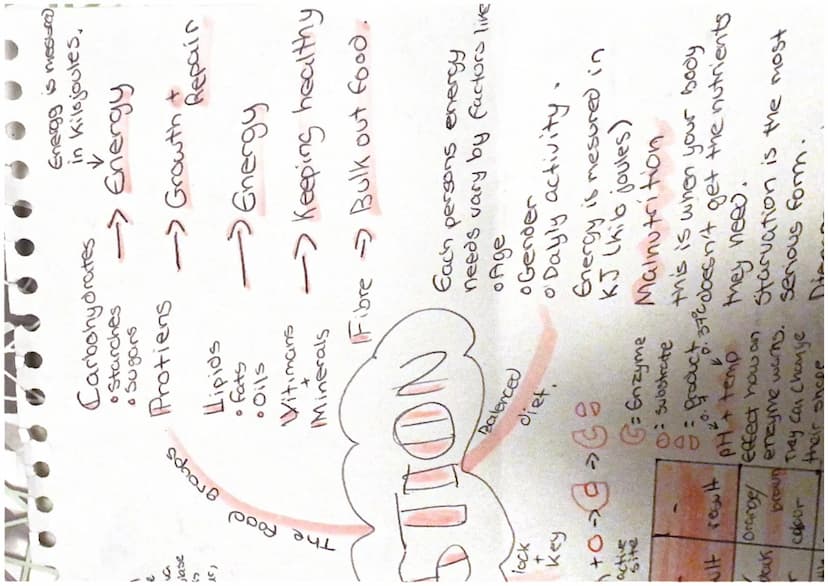 Energy is measured
in Kilojoules.
Carbohydrates → Energy
• Starches
• Sugars
Protiens → Growth +
Repair
Lipids → Energy
• fats
• Oils
Vitimans → Keeping healthy
+
Minerals
Fibre → Bulk out food.
The food groups
UTION
Balanced
diet.
Each persons energy
needs vary by factors like
• Age
• Gender
• Dayly activity.
Energy is mesured in
KJ (kilo joules)
Malnutrition
this is when your body
doesn't get the nutrients
they need.
Starvation is the most
serious form.
lock
+
Key
active
site
= Enzyme
= Substrate
= Product
pH + temp
effect how an
enzyme works.
They can change
their shape
result
-
orange/
brown
colour